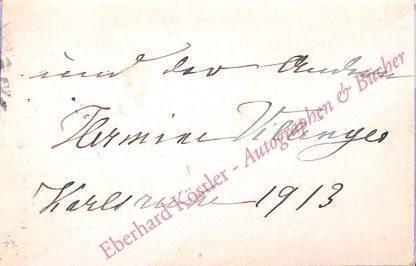 und der Andern
Hermine Villinger
Karlsruhe 1913
Eberhard Köstler - Autographen & Bücher